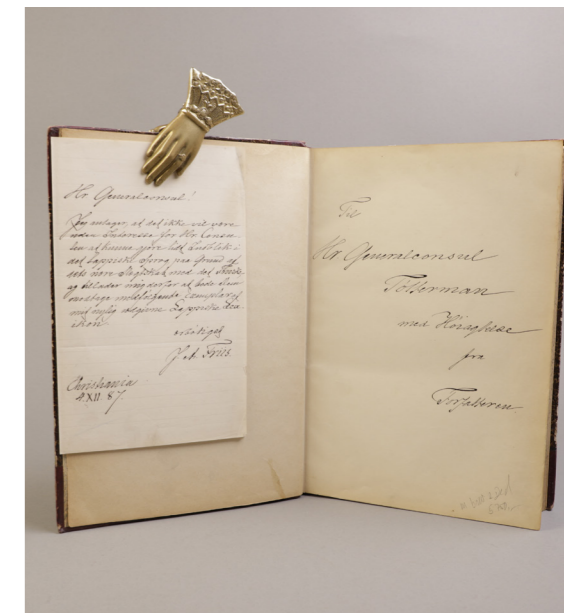 Hr Generalconsul!
Jeg antager, at det ikke vil være
uden Interesse for Hr. Consu-
len at kunne gjøre lidt Indblik i
det lappiske Sprog paa Grund af
dets nære Slægtskab med det Finske
og tillader mig derfor at bede Dem
modtage medfølgende Exemplar af
mit nylig udgivne Lappiske Lex-
ikon.
ærbødigst
J. A. Friis
Christiania
4. XII 87.
Til
Hr Generalconsul
Tötterman
med Höiagtelse
fra
Forfatteren